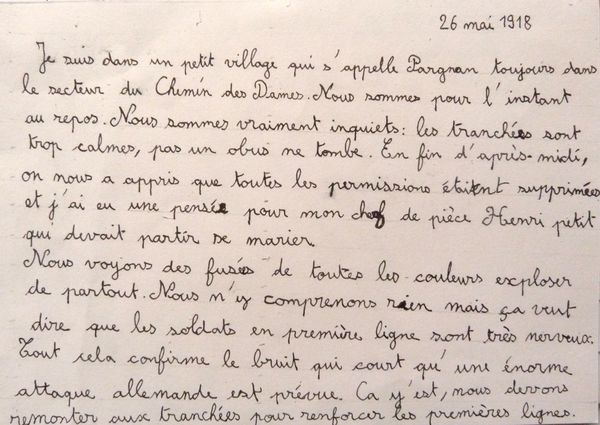 26 mai 1918
Je suis dans un petit village qui s'appelle Pargnan toujours dans
le secteur du Chemin des Dames. Nous sommes pour l'instant
au repos. Nous sommes vraiment inquiets: les tranchées sont
trop calmes, pas un obus ne tombe. En fin d'après-midi,
on nous a appris que toutes les permissions étaient supprimées
et j'ai eu une pensée pour mon chef de pièce Henri petit
qui devait partir se marier.
Nous voyons des fusées de toutes les couleurs exploser
de partout. Nous n'y comprenons rien mais ça veut
dire que les soldats en première ligne sont très nerveux.
Tout cela confirme le bruit qui court qu'une énorme
attaque allemande est prévue. Ca y'est, nous devons
remonter aux tranchées pour renforcer les premières lignes.